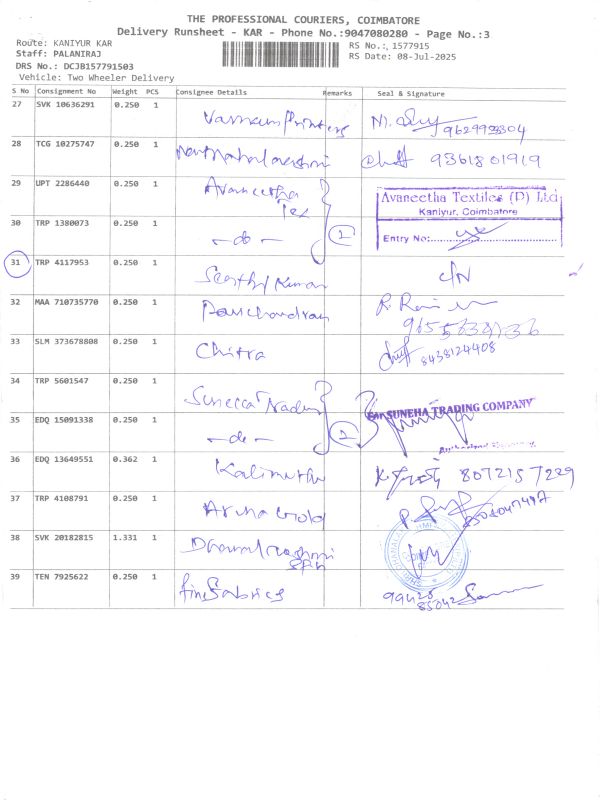 THE PROFESSIONAL COURIERS, COIMBATORE
Delivery Runsheet - KAR - Phone No.:9047080280 - Page No.:3
Route: KANIYUR KAR
RS No.: 1577915
Staff: PALANIRAJ
RS Date: 08-Jul-2025
DRS No.: DCJB157791503
Vehicle: Two Wheeler Delivery
S No Consignment No Weight PCS Consignee Details Remarks Seal & Signature
27 SVK 10636291 0.250 1 Printers
28 TCG 10275747 0.250 1 9361801919
29 UPT 2286440 0.250 1 Avaneetha Tex
Avaneetha Textiles (P) Ltd
Kaniyur, Coimbatore
30 TRP 1380073 0.250 1 - do - 1 Entry No:
31 TRP 4117953 0.250 1 Kumar C/N
32 MAA 710735770 0.250 1 Ramchandran
33 SLM 373678808 0.250 1 Chitra 8438124408
34 TRP 5601547 0.250 1
For SUNEHA TRADING COMPANY
35 EDQ 15091338 0.250 1 - do - 2
36 EDQ 13649551 0.362 1 Kalimuthu 8072157229
37 TRP 4108791 0.250 1 Aruna Gold
38 SVK 20182815 1.331 1
39 TEN 7925622 0.250 1 Fabrics 99428
85042